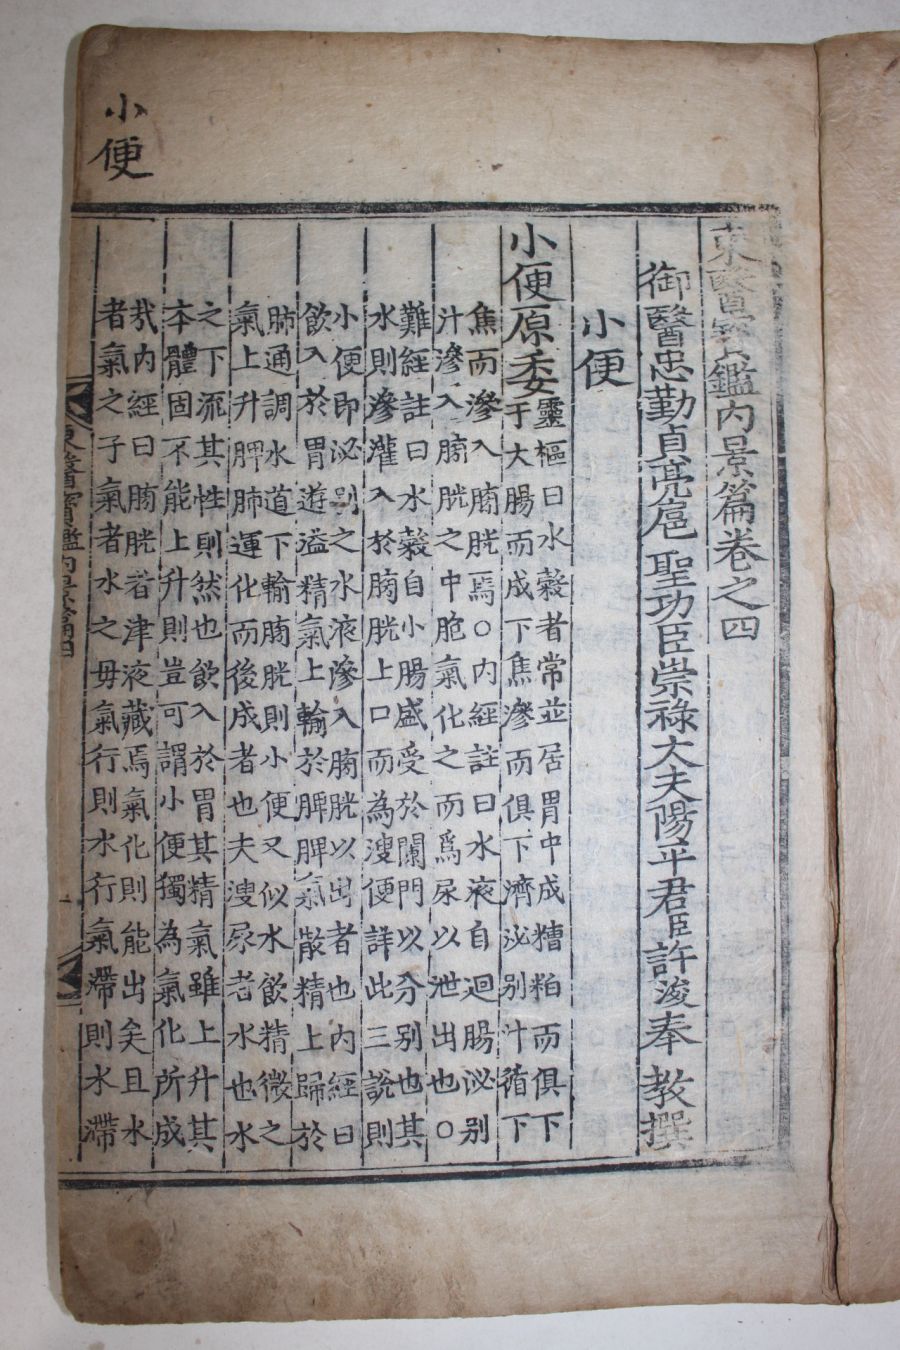 小便
東醫寶鑑內景篇卷之四
御醫忠勤貞亮扈 聖功臣崇祿大夫陽平君臣許浚奉 教撰
小便
小便原委
靈樞曰水穀者常並居胃中成糟粕而俱下
于大腸而成下焦滲而俱下濟泌別汁循下
焦而滲入膀胱焉○內經註曰水液自迴腸泌別
汁滲入膀胱之中胞氣化之而爲尿以泄出也○
難經註曰水穀自小腸盛受於闌門以分別也其
水則滲灌入於膀胱上口而為溲便詳此三說則
小便卽泌別之水液滲入膀胱以出者也內經曰
飮入於胃遊溢精氣上輸於脾脾氣散精上歸於
肺通調水道下輸膀胱則小便又似水飮精微之
氣上升脾肺運化而後成者也夫溲尿者水也水
之下流其性則然也飮入於胃其精氣雖上升其
本體固不能上升則豈可謂小便獨為氣化所成
哉內經曰膀胱者津液藏焉氣化則能出矣且水
者氣之子氣者水之母氣行則水行氣滯則水滯
東醫寶鑑內景篇四
一